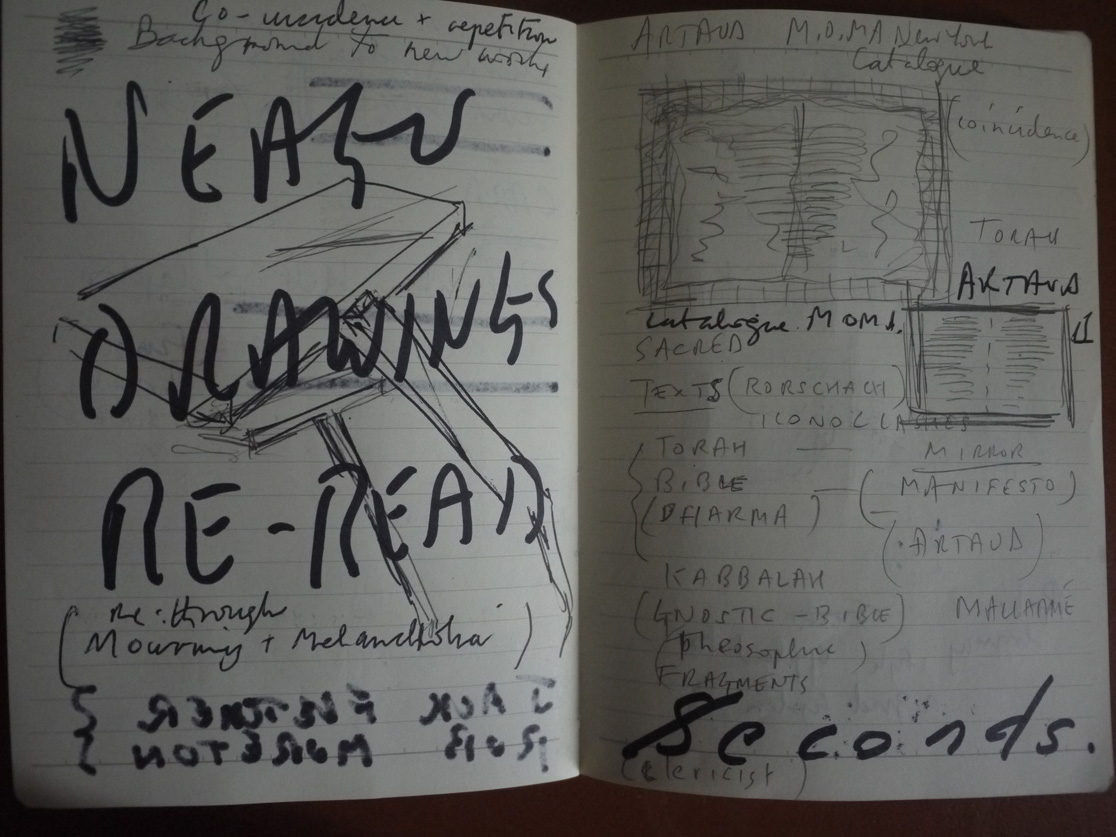 Co-incidence + repetition
Background to new works
NEAR
DRAWINGS
RE-READ
re: through
(Mourning + Melancholia)
ARTAUD M.O.MA New York
Catalogue
(coincidence)
TORAH
ARTAUD
catalogue MOMA.
SACRED
TEXTS (RORSCHACH)
ICONOCLASHES
TORAH — MIRROR
BIBLE — (MANIFESTO)
(DHARMA) (ARTAUD)
KABBALAH
(GNOSTIC-BIBLE) MALLARMÉ
(theosophic)
FRAGMENTS
Seconds.